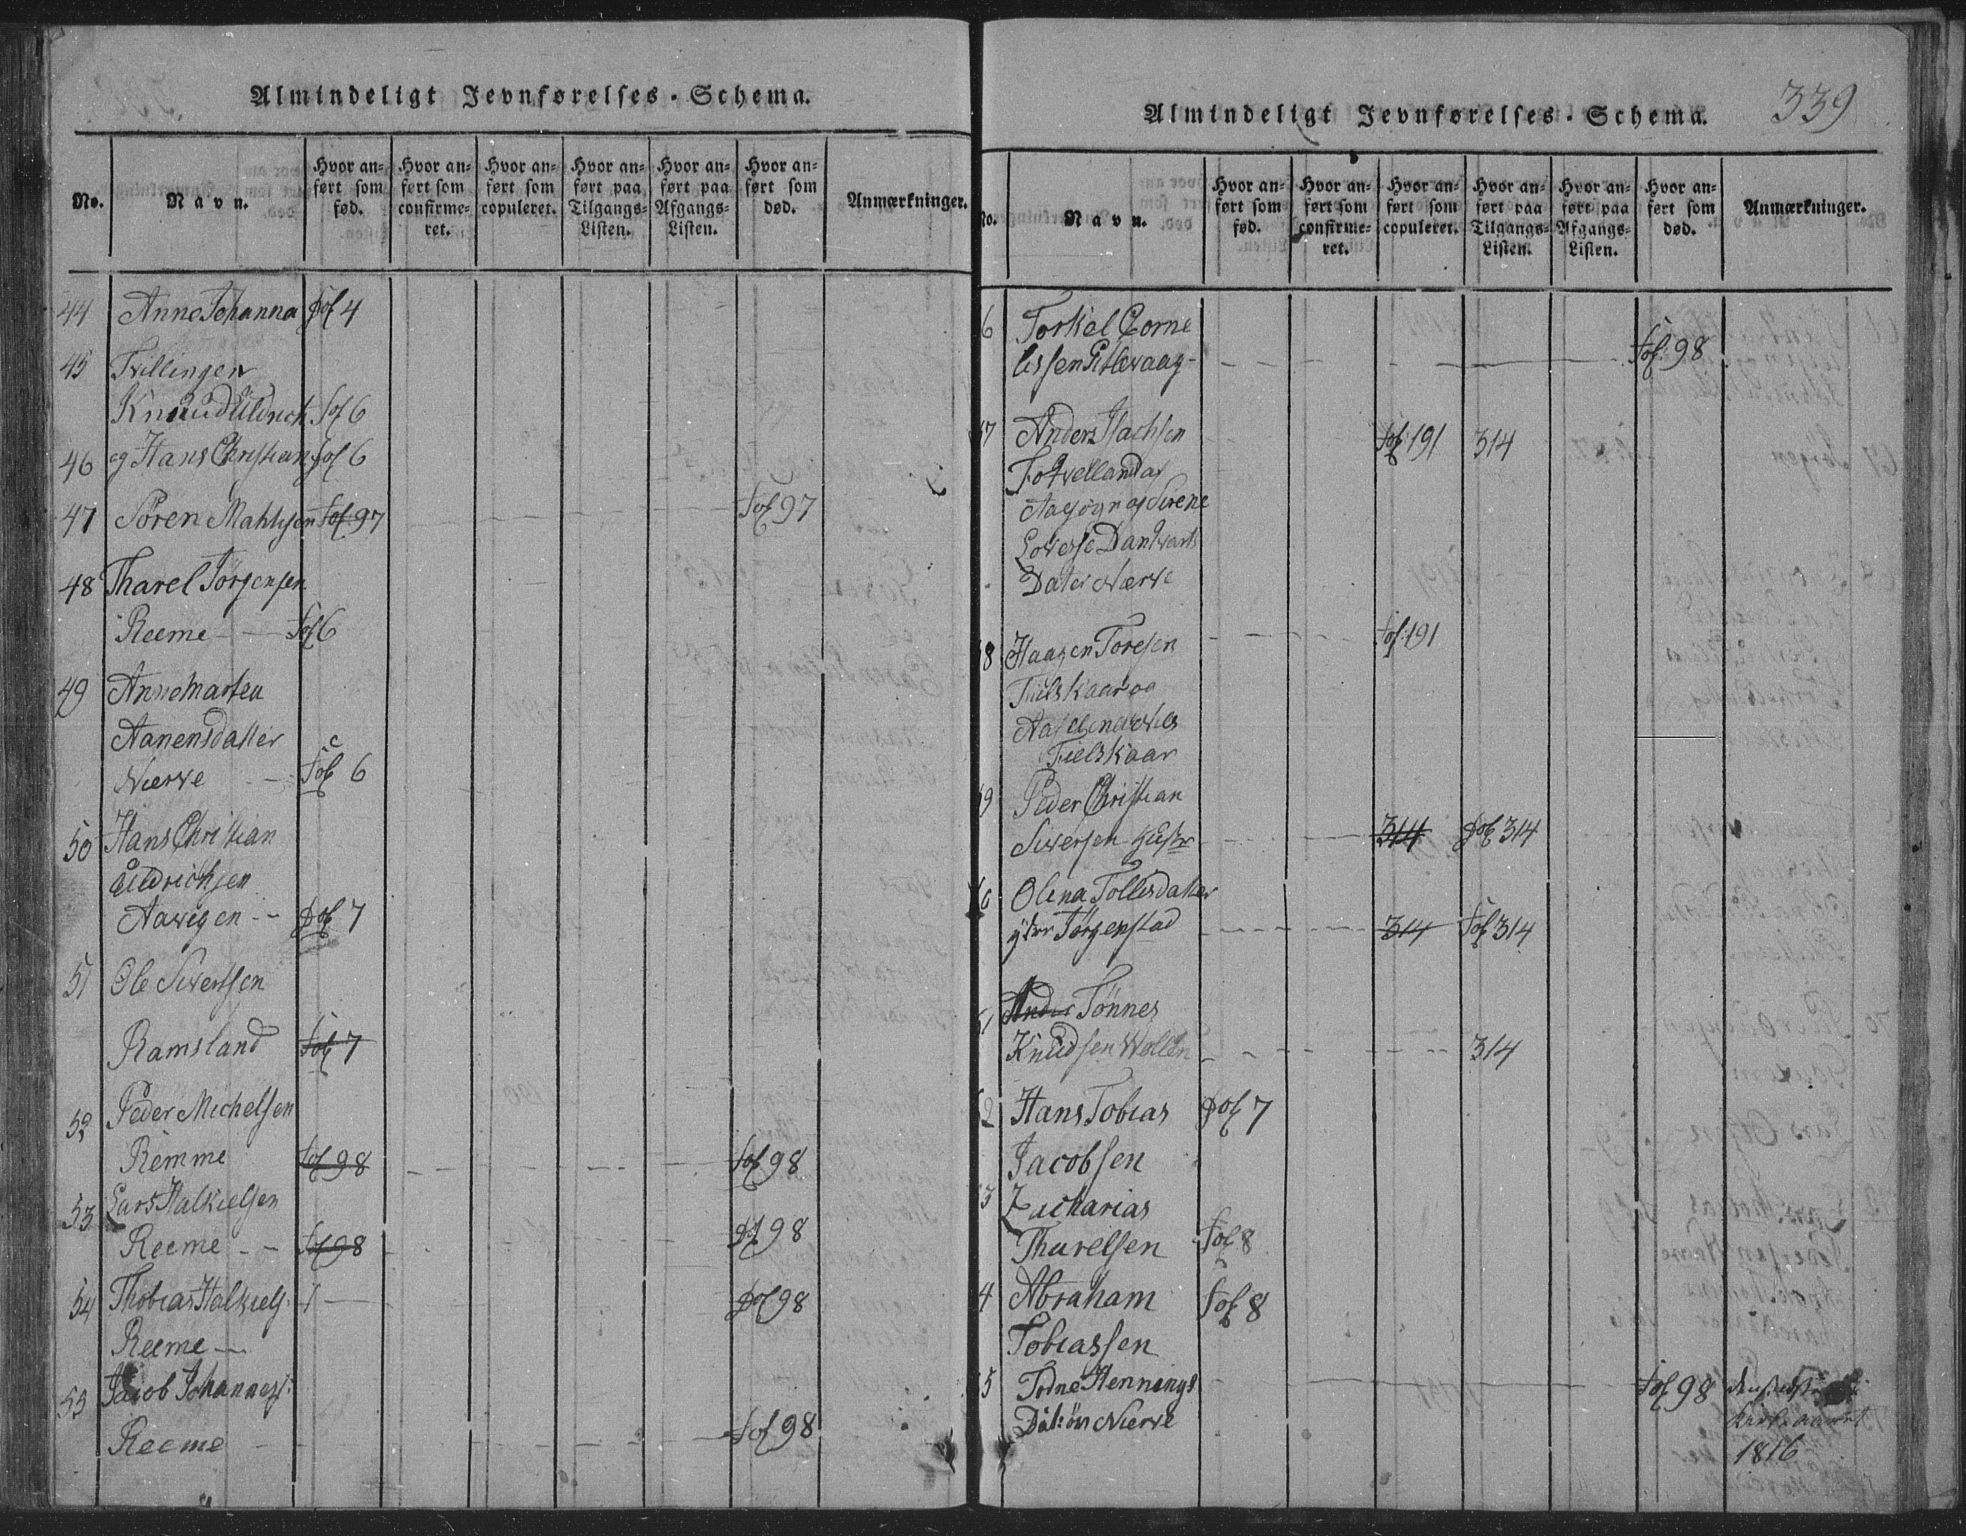 Almindeligt Jevnførelses-Schema.
No.
Navn.
Hvor anført som fød.
Hvor anført som confirmeret.
Hvor anført som copuleret.
Hvor anført paa Tilgangs-Listen.
Hvor anført paa Afgangs-Listen.
Hvor anført som død.
Anmærkninger.
44 Anne Johanna Fol 4
45 Tvillingen
Knuud Uldrich fol 6
46 og Hans Christian fol 6
47 Sören Mathisen fol 97 fol 97
48 Tharel Jörgensen
Reeme fol 6
49 Anne Martea
Aanensdatter
Nærve fol 6
50 Hans Christian
Uldrichsen
Aavigen -- Fol 7
51 Ole Sivertsen
Ramsland fol 7
52 Peder Michelsen
Remme fol 98 fol 98
53 Lars Halkielsen
Reeme -- fol 98 fol 98
54 Thobias Halkiels. 7 Fol 98
Reeme —
55 Jacob Johannes:
Reeme fol 98
339
Almindeligt Jevnførelses-Schema.
No.
Navn.
Hvor anført som fød.
Hvor anført som confirmeret.
Hvor anført som copuleret.
Hvor anført paa Tilgangs-Listen.
Hvor anført paa Afgangs-Listen.
Hvor anført som død.
Anmærkninger.
6 Torkel Corne
lissen fol: 98
57 Anders Isachsen fol: 191 314
Sirene
Lovise Dankvarts
Dater Nærve
58 Haagen Toresen fol: 191
Fielskaar og
Nels
Fielskaar
59 Peder Christian
Siversen 314 Fol 314
60 Olena Tollisdatter
Jörgenstad 314 fol 314
61 Ander Tönnes
Knudsen Wollen 314
62 Hans Tobias Fol 7
Jacobsen
3 Zacharias
Tharelsen fol 8
4 Abraham fol 8
Tobiassen
5 Tone Hennings fol 98
Nærve
1816